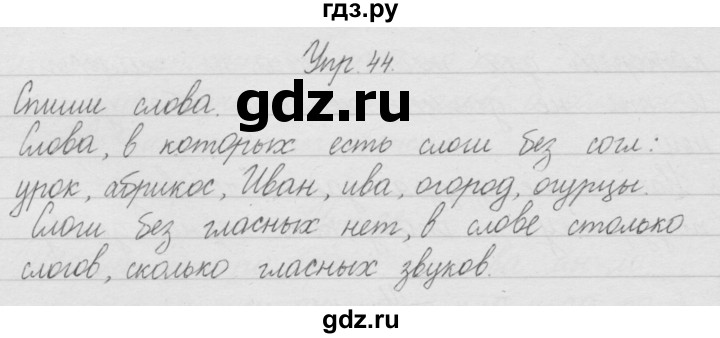 гдз.ру
Упр. 44.
Спиши слова.
gdz.ru
Слова, в которых есть слоги без согл:
урок, абрикос, Иван, ива, огород, огурцы.
Слоги без гласных нет, в слове столько
слогов, сколько гласных звуков.
gdz.ru